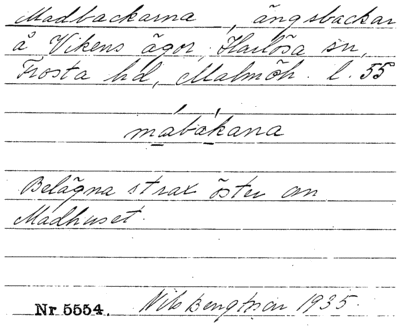 Madbackarna, ängsbackar
å Vikens ägor, Harlösa sn,
Frosta hd, Malmöh. l. 55
mabakana
Belägna strax öster om
Madhuset.
Nr. 5554. Nils Bengtsson 1935.